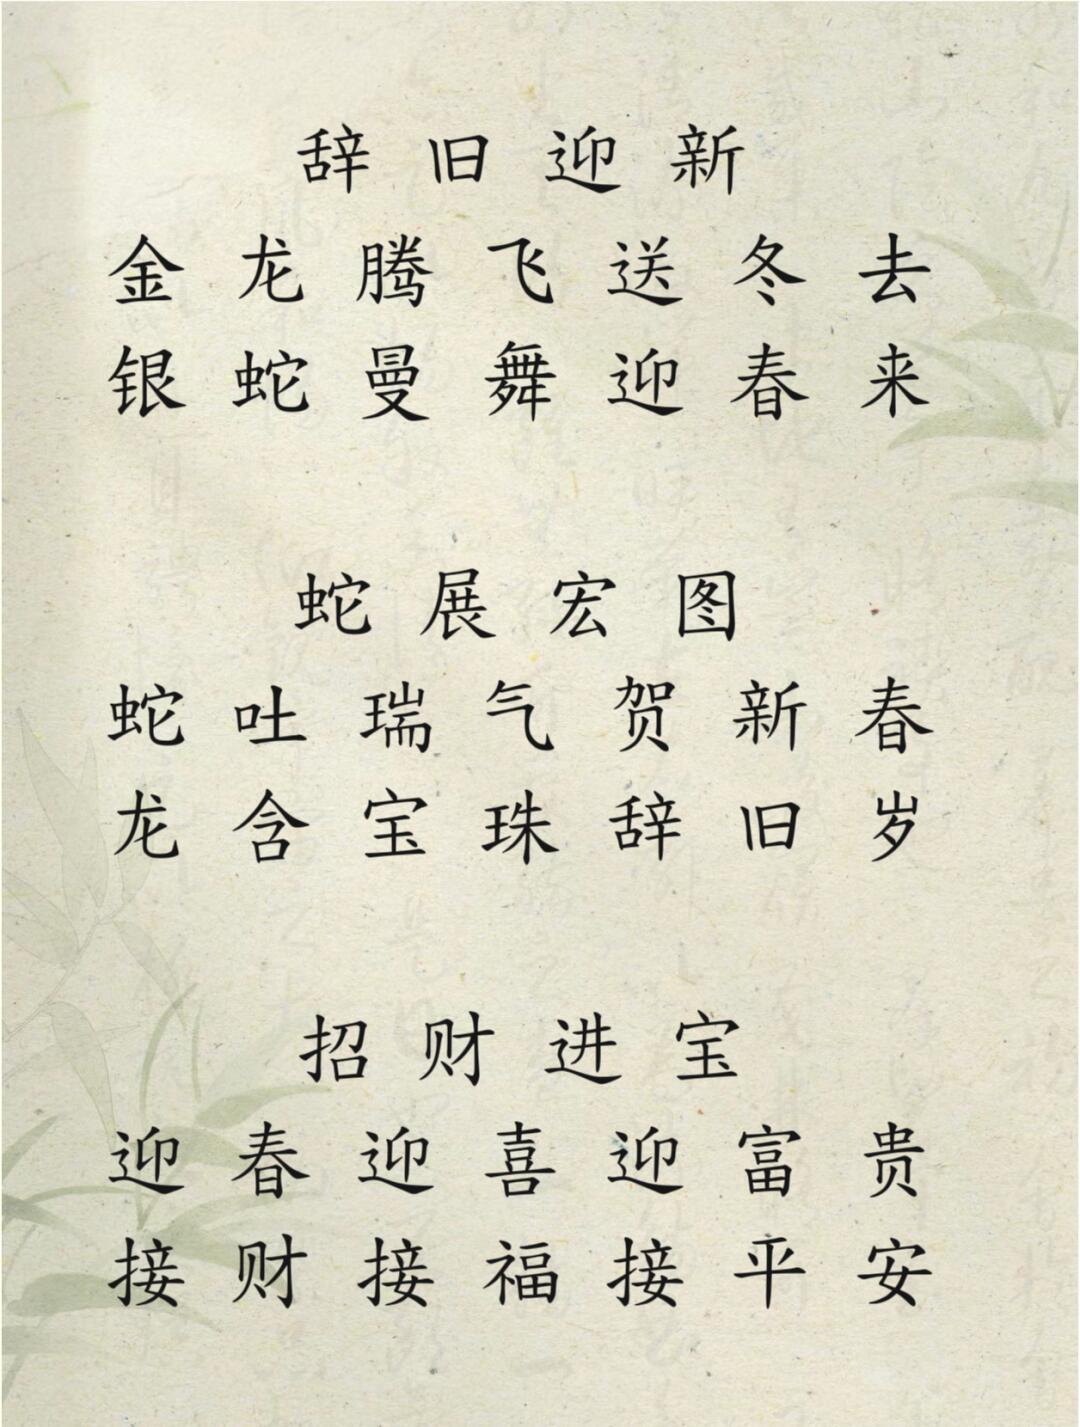 辞旧迎新
金龙腾飞送冬去
银蛇曼舞迎春来
蛇展宏图
蛇吐瑞气贺新春
龙含宝珠辞旧岁
招财进宝
迎春迎喜迎富贵
接财接福接平安